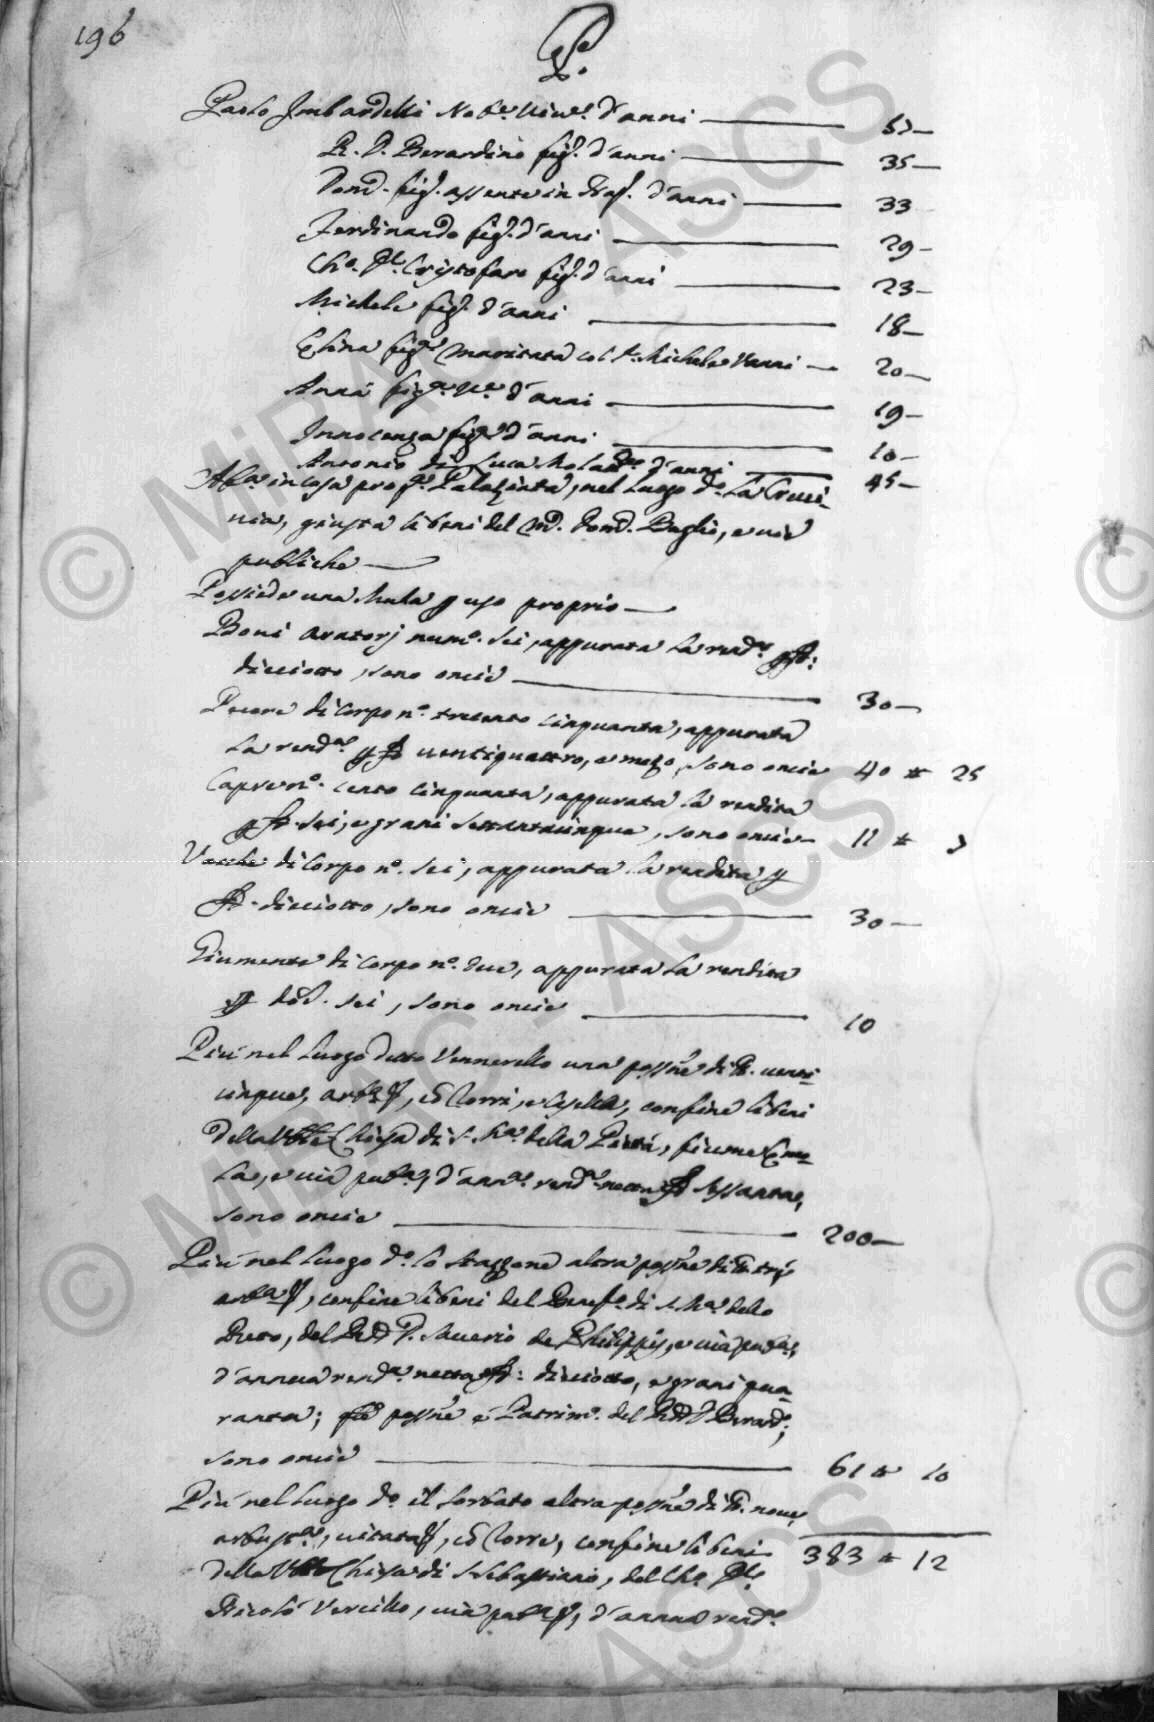 196
P.
Paolo Imbardelli Nob.e Viv.e d'anni
R. D. Berardino fig.o d'anni 35
Dom.o fig.o assente in d'anni 33
Ferdinando fig.o d'anni 29
Ch.o Cristofaro fig.o d'anni 23
Michele fig.o d'anni 18
fig.a maritata col Michele Vanni 20
Anna fig.a d'anni 19
Innocenza fig.a d'anni 10
Antonio di Luca d'anni 45
Ab.a in casa prop.a Palaziata, nel luogo d.o La Cruci-
nia, giusta li beni del M. Dom.o Puglia, e vie
publiche
Possiede una Mula p uso proprio
Bovi aratorj num.o sei, appurata la rend.a p
dieciotto, sono oncie 30
Pecore di corpo n.o trecento cinquanta, appurata
la rend.a p ventiquattro, e mezo, sono oncie 40 * 25
Capre n.o cento cinquanta, appurata la rendita
p sei, e grani settantacinque, sono oncie 11 *
Vacche di corpo n.o sei, appurata la rendita p
dieciotto, sono oncie 30
Giumente di corpo n.o due, appurata la rendita
p doc. sei, sono oncie 10
Più nel luogo detto Vennerello una poss.ne di venti-
cinque, arb.ta, Torri, e casella, confine li beni
della Chiesa di S. M.a della Pietà, fiume
la, e via pub.a, d'ann.a rend.a netta sessanta,
sono oncie 200
Più nel luogo d.o lo Stazzone altra poss.ne di tre
arb.ta, confine li beni del Benef.o di S. M.a dello
Reto, del D. Saverio de Philippis, e via pub.a,
d'annua rend.a netta dieciotto, e grani qua-
ranta; poss.ne è Patrim.o del D. Berard.o;
sono oncie 61 * 10
Più nel luogo d.o il Sorbato altra poss.ne di nove
arbust.a, vitata, Torre, confine li beni
383 * 12
della Chiesa di S. Sebastiano, del Ch.o
Nicolò Vercillo, via pub.a, d'annua rend.a